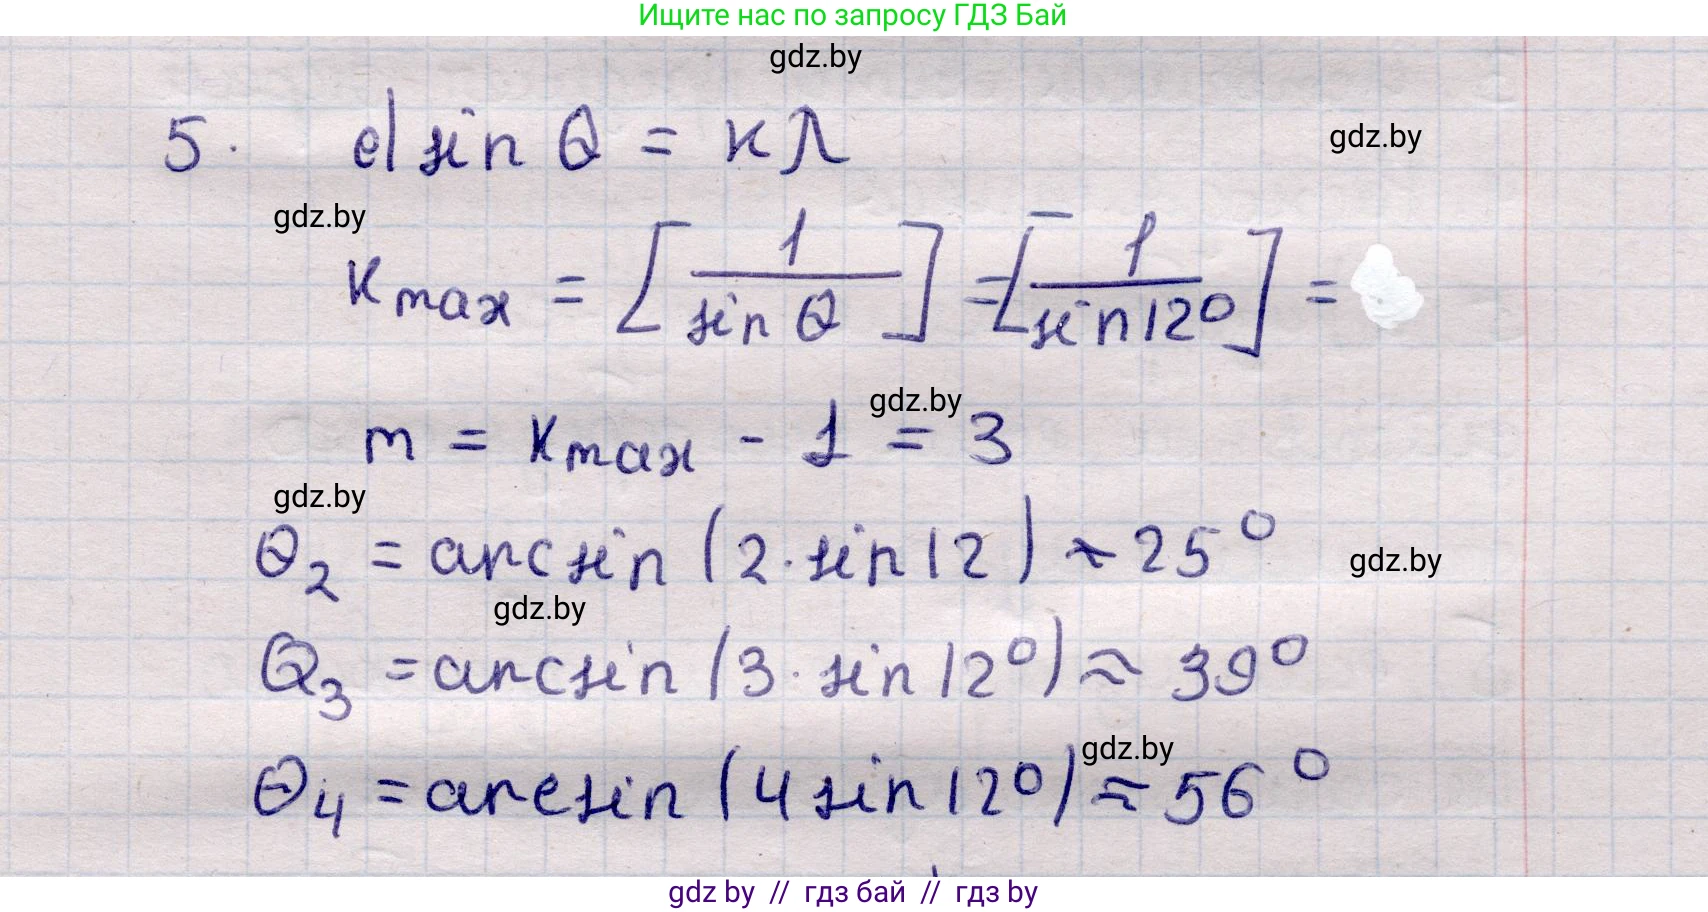 Ищите нас по запросу ГДЗ Бай
gdz.by
5. d sin θ = kλ
gdz.by
gdz.by
k max = [ 1 / sin θ ] = [ 1 / sin 12° ] =
gdz.by
m = k max - 1 = 3
gdz.by
θ₂ = arcsin (2 · sin 12) ≈ 25°
gdz.by
gdz.by
θ₃ = arcsin (3 · sin 12°) ≈ 39°
gdz.by
θ₄ = arcsin (4 sin 12°) ≈ 56°
gdz by // гдз бай // гдз by